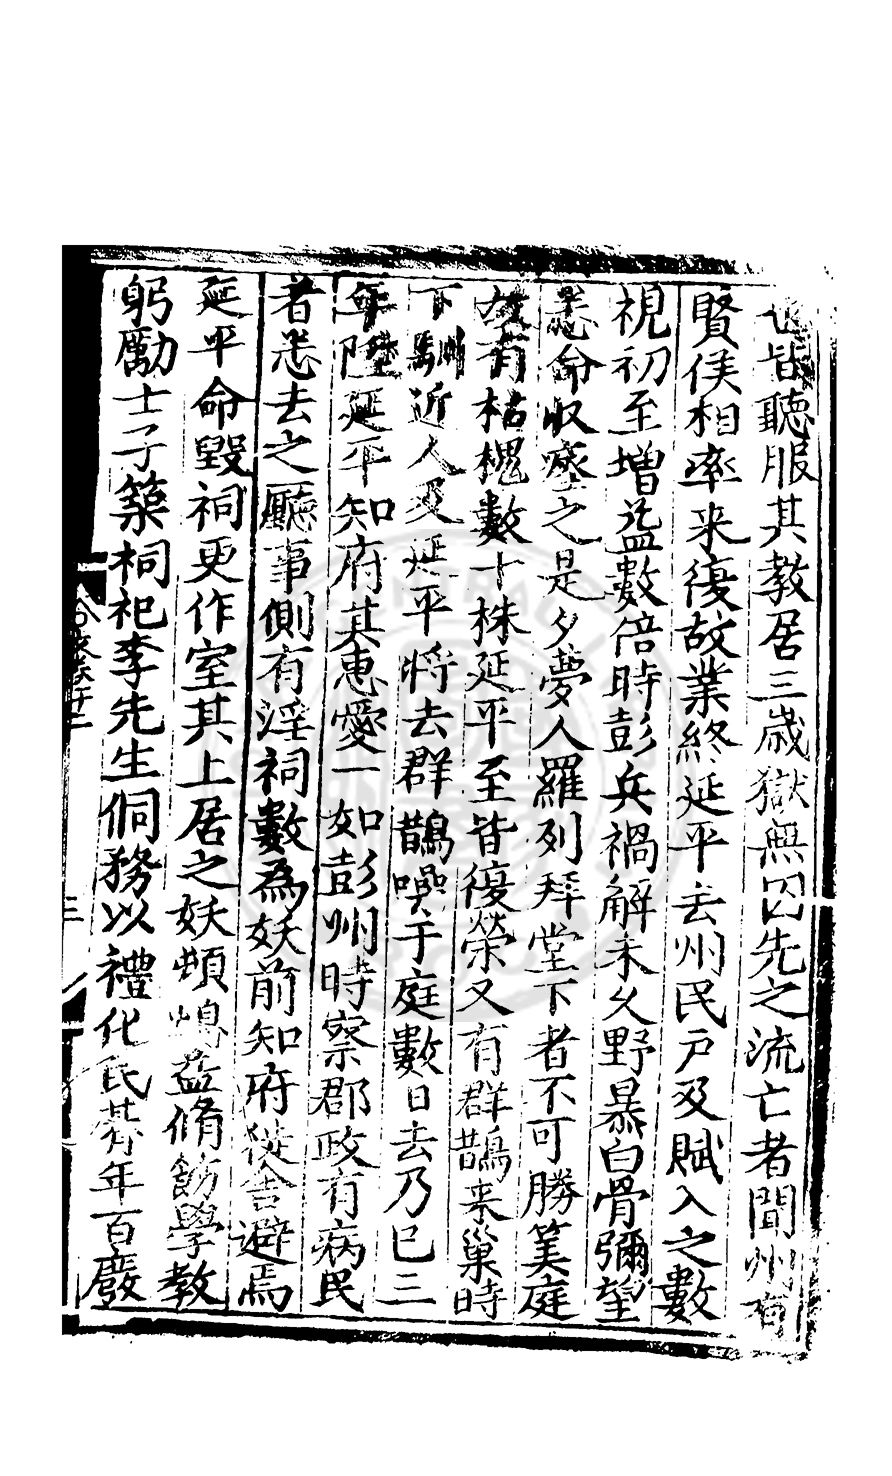 也皆聽服其教居三歲獄無囚先之流亡者聞州有
賢侯相率来復故業終延平去州民戶及賦入之數
視初至增益數倍時彭兵禍解未乆野暴白骨彌望
悉命収瘞之是夕夢人羅列拜堂下者不可勝筭庭
故有枯槐數十株延平至皆復榮又有群鵲来巢時
下馴近人及延平將去群鵲噪于庭數日去乃已三
年陞延平知府其惠愛一如彭州時察郡政有病民
者悉去之廳事側有淫祠數為妖前知府徙舍避焉
延平命毀祠更作室其上居之妖頓熄益脩飭學教
躬勵士子築祠祀李先生侗務以禮化民朞年百廢
三